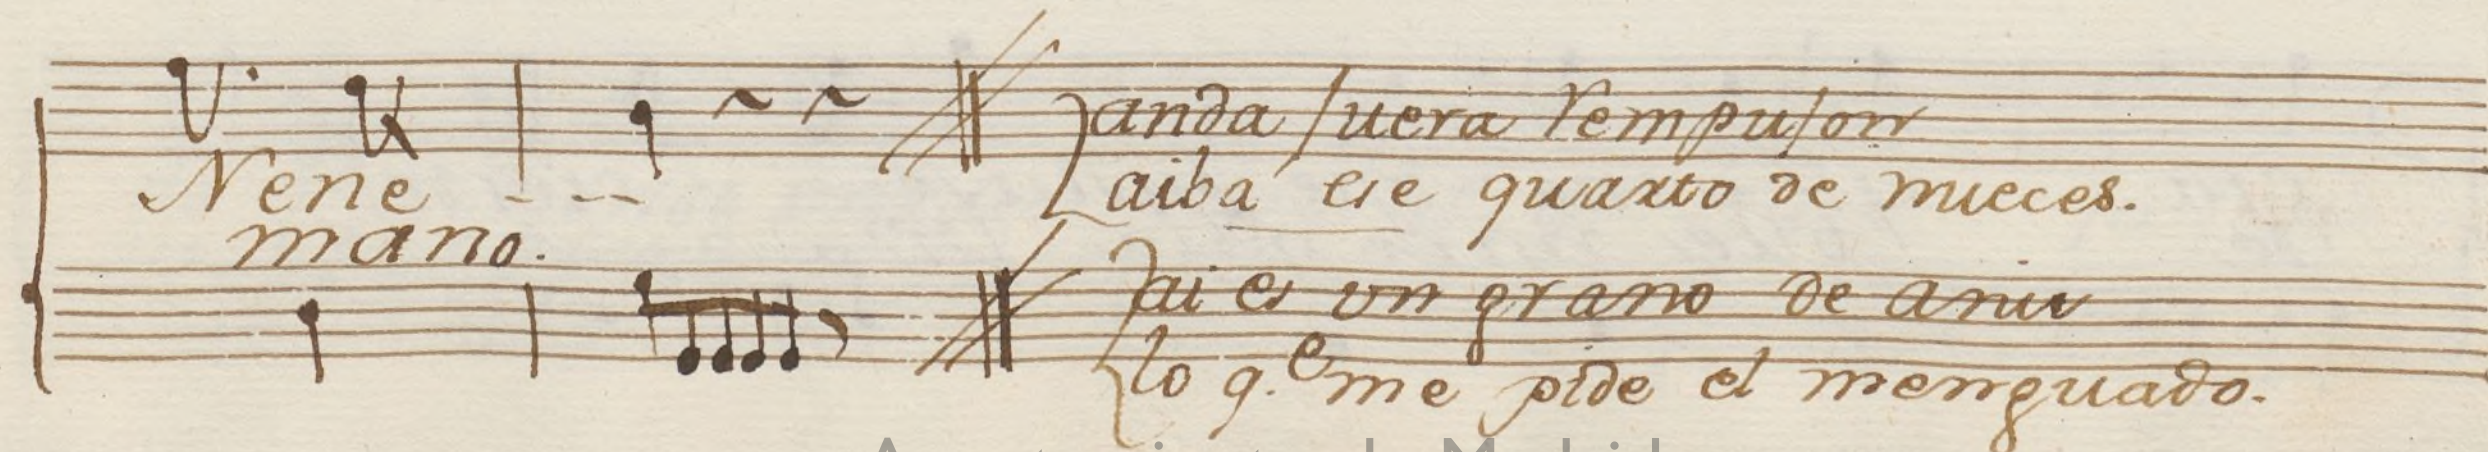 Nene - - -
mano.
anda fuera Rempujon
aiba ese quarto de nueces.
ai es un grano de anis
lo q.e me pide el menguado.